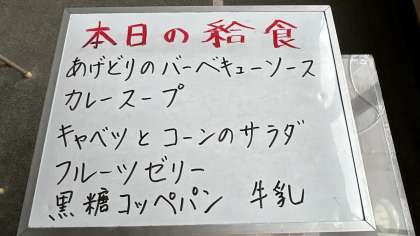 本日の給食
あげどりのバーベキューソース
カレースープ
キャベツとコーンのサラダ
フルーツゼリー
黒糖コッペパン 牛乳